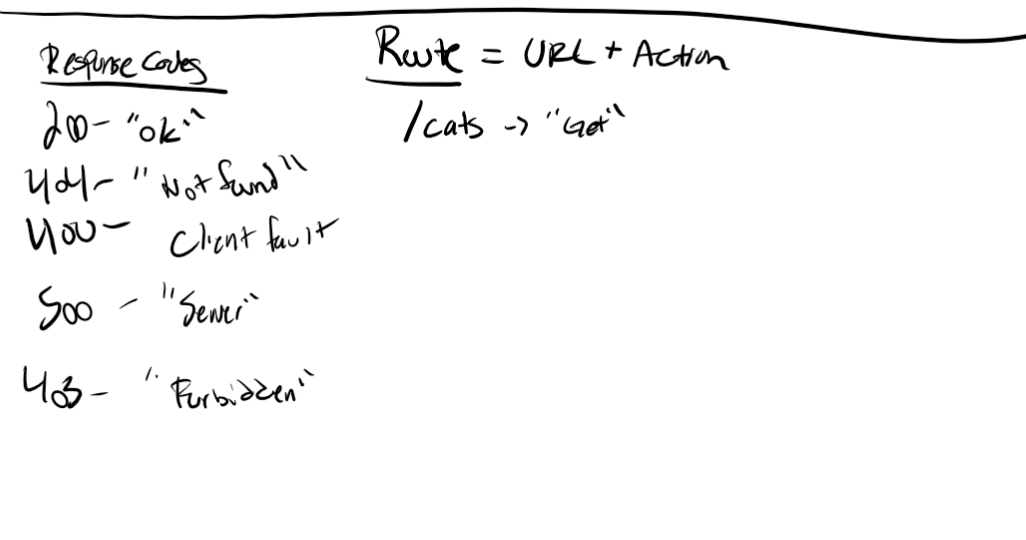 Response Codes
200 - "ok"
404 - "Not found"
400 - Client fault
500 - "Server"
403 - "Forbidden"
Route = URL + Action
/cats -> "Get"